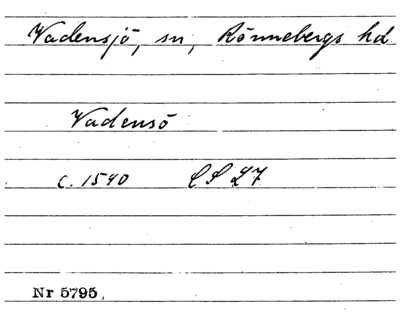 Vadensjö, sn, Rönnebergs hd
Vadensö
c. 1540 CS 27
Nr 5795.